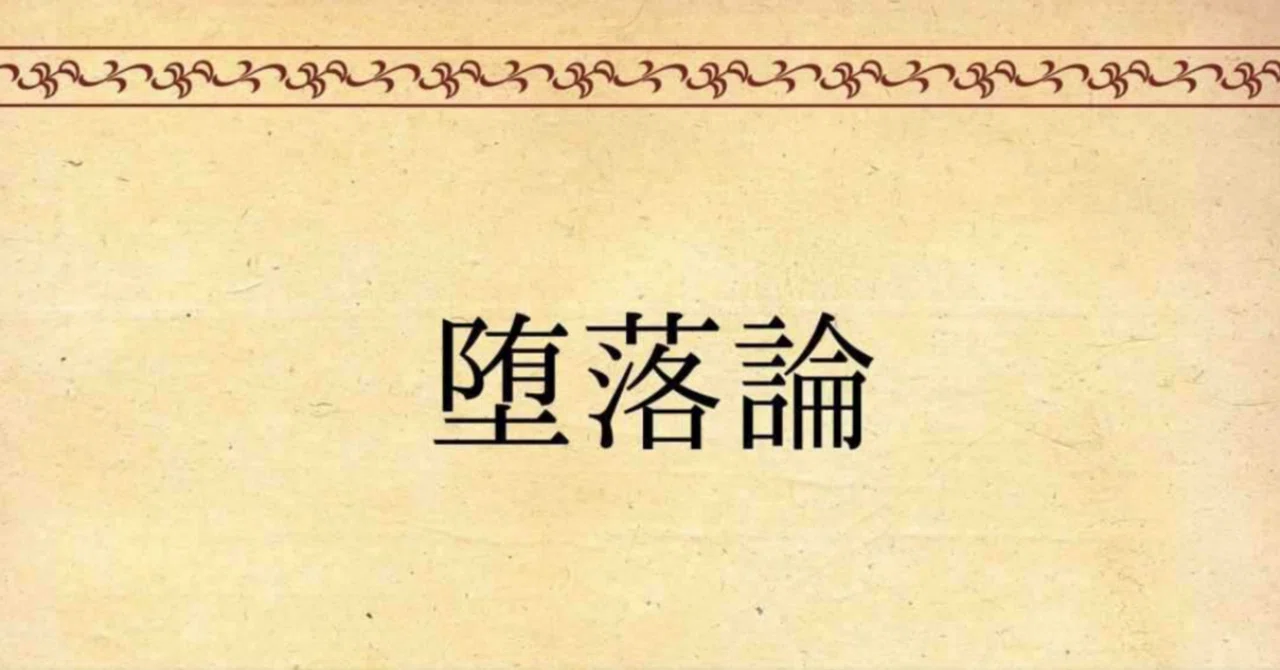 堕落論